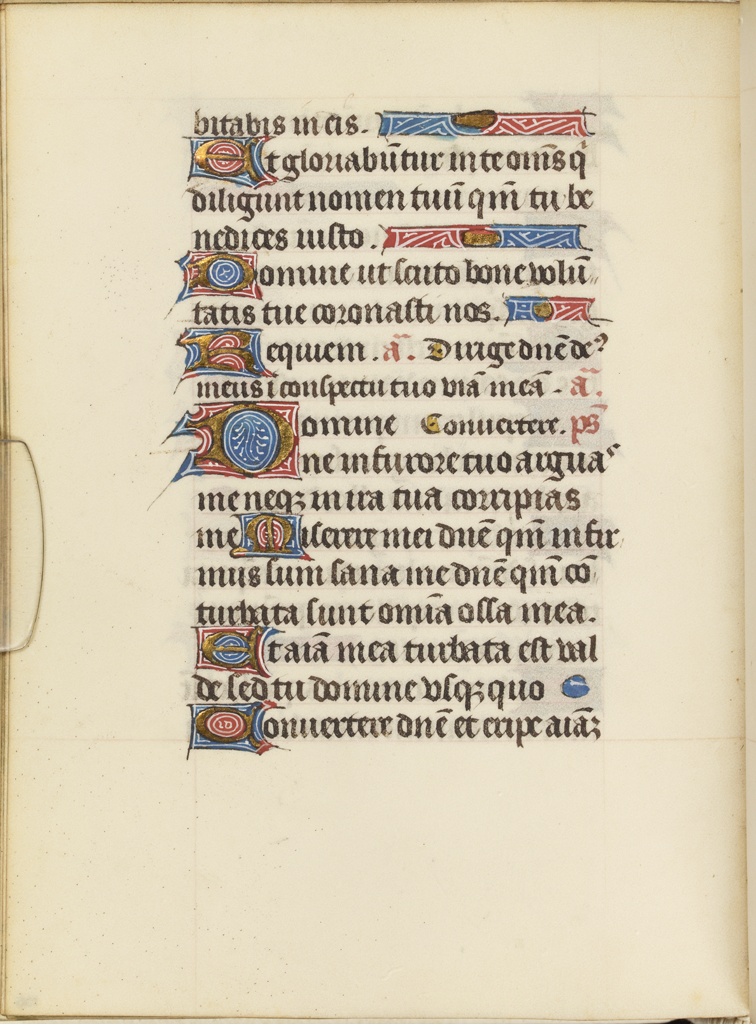 bitabis in eis.
Et gloriabūtur in te om̄s q̇
diligunt nomen tuū qm̄ tu be
nedices iusto.
Domine ut scuto bone volū
tatis tue coronasti nos.
Requiem. a. Dirige dnē de⁹
meus ī conspectu tuo viā meā. a.
Domine Conuertere. ps̄
ne in furore tuo arguas
me neqꝫ in ira tua corripias
me Miserere mei dnē qm̄ infir
mus sum sana me dnē qm̄ cō
turbata sunt omīa ossa mea.
Et aīa mea turbata est val
de sed tu domine vsqꝫ quo
Conuertere dnē et eripe aīaꝫ